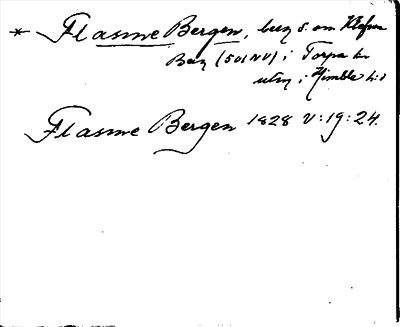 * Flasme Bergen, berg s. om Klefven
Berg (501 NV) i Torpa sn
utm i Himble hd
Flasme Bergen 1828 V:19:24.